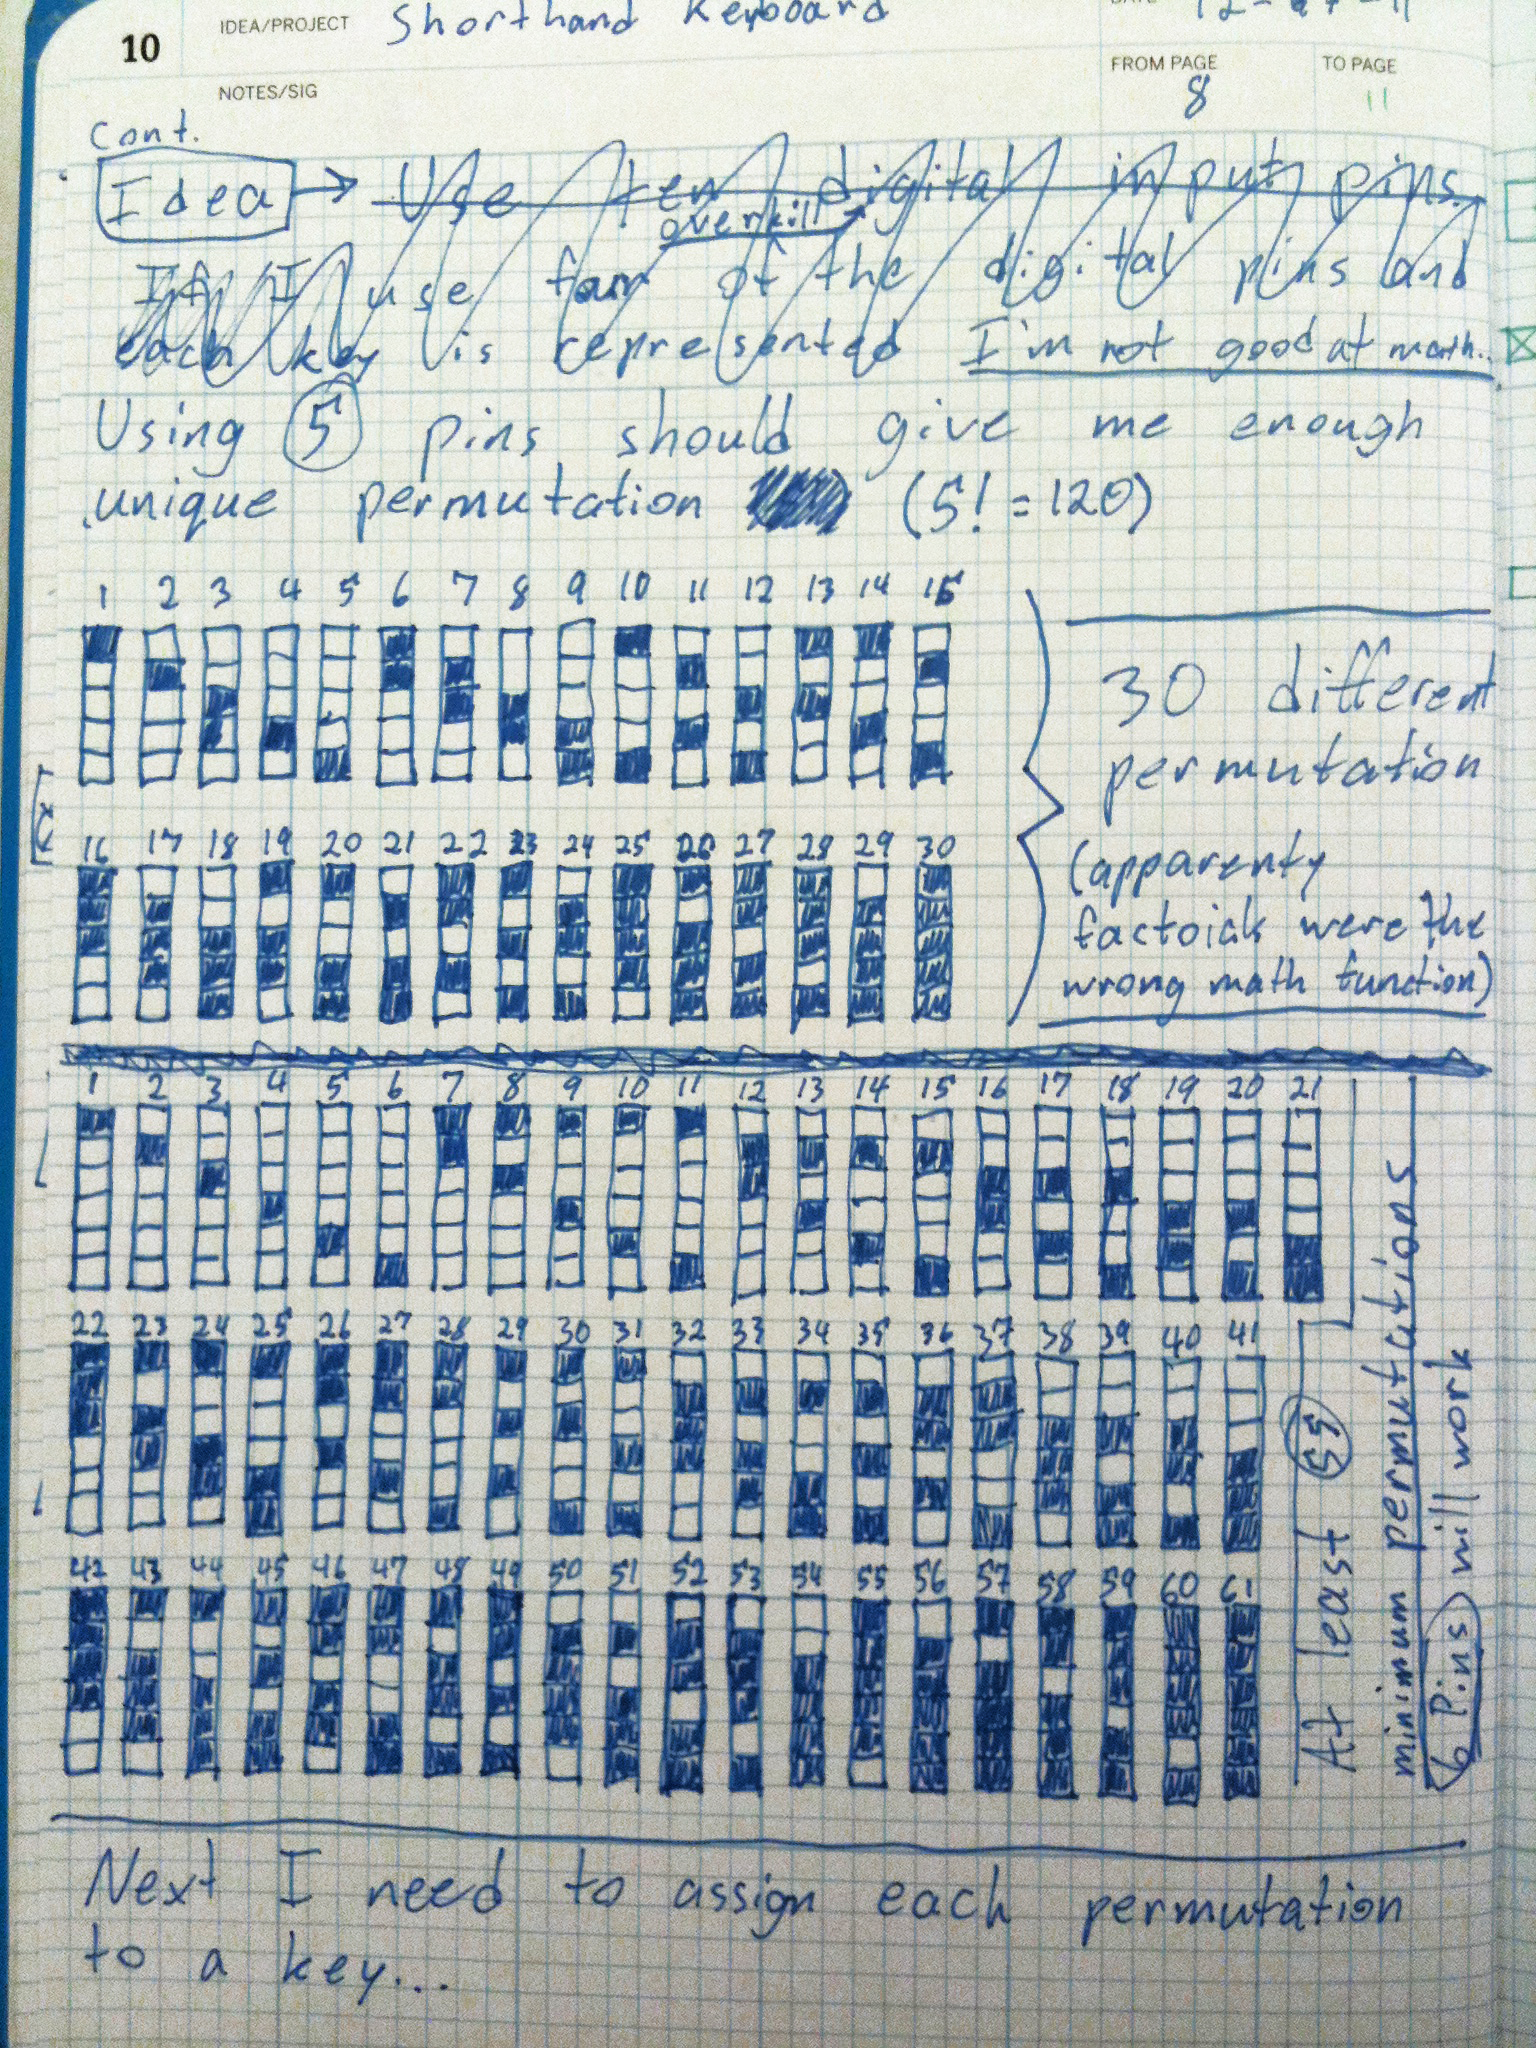 10
IDEA/PROJECT Shorthand Keyboard
FROM PAGE TO PAGE
8 11
NOTES/SIG
Cont.
Idea → Use ten digital input pins.
overkill
If I use four of the digital pins and
each key is represented I'm not good at math..
Using 5 pins should give me enough
unique permutation (5! = 120)
1 2 3 4 5 6 7 8 9 10 11 12 13 14 15
30 different
permutation
(apparenty
factoials were the
wrong math function)
16 17 18 19 20 21 22 23 24 25 26 27 28 29 30
1 2 3 4 5 6 7 8 9 10 11 12 13 14 15 16 17 18 19 20 21
22 23 24 25 26 27 28 29 30 31 32 33 34 35 36 37 38 39 40 41
42 43 44 45 46 47 48 49 50 51 52 53 54 55 56 57 58 59 60 61
At least 55
minimum permutations
6 Pins will work
Next I need to assign each permutation
to a key...